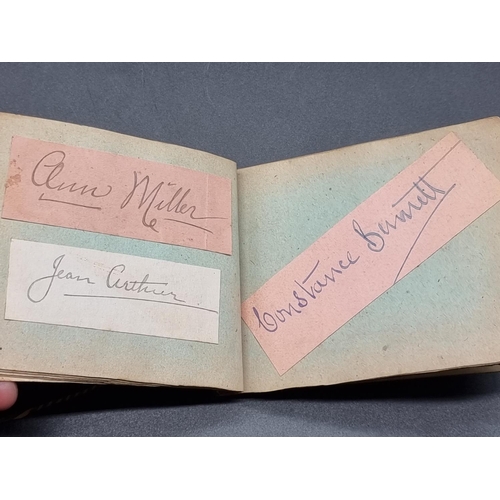 Ann Miller
Jean Arthur
Constance Bennett